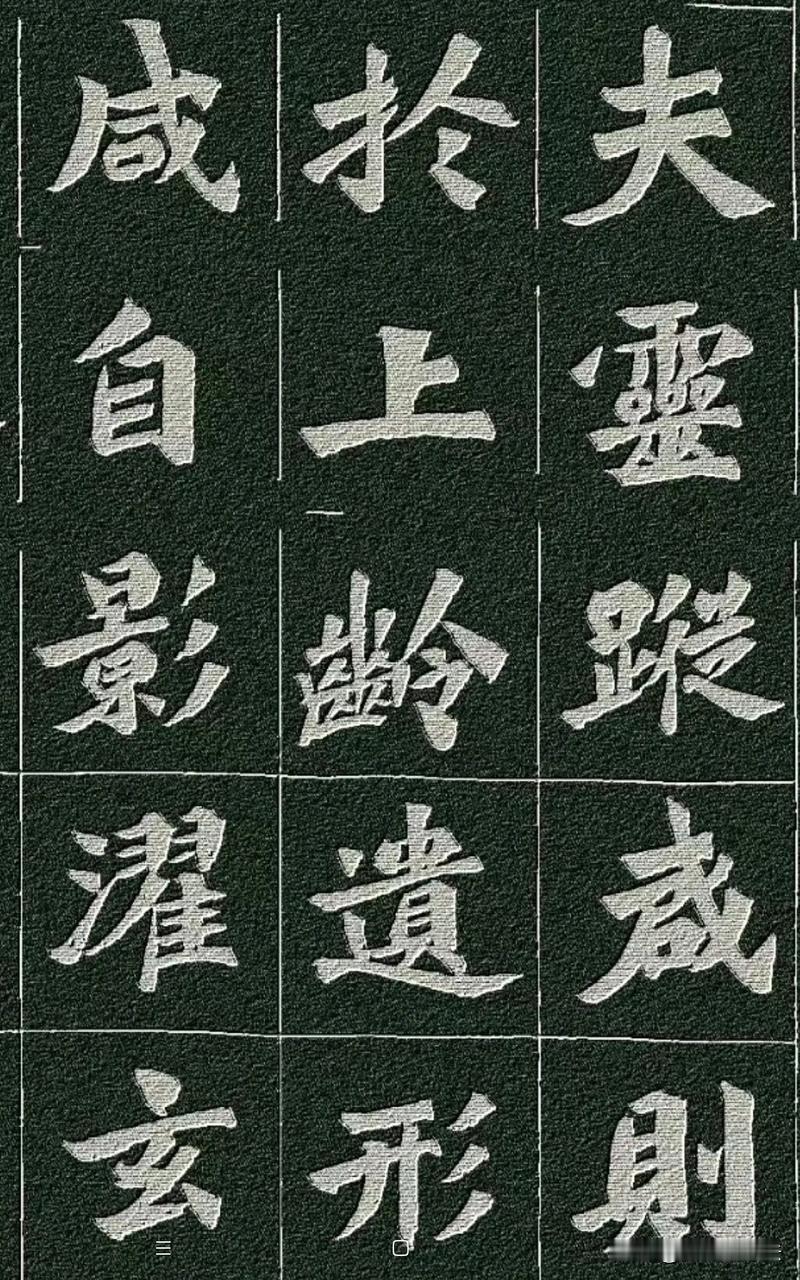 夫靈蹤則
於上齡遺形
咸自影濯玄